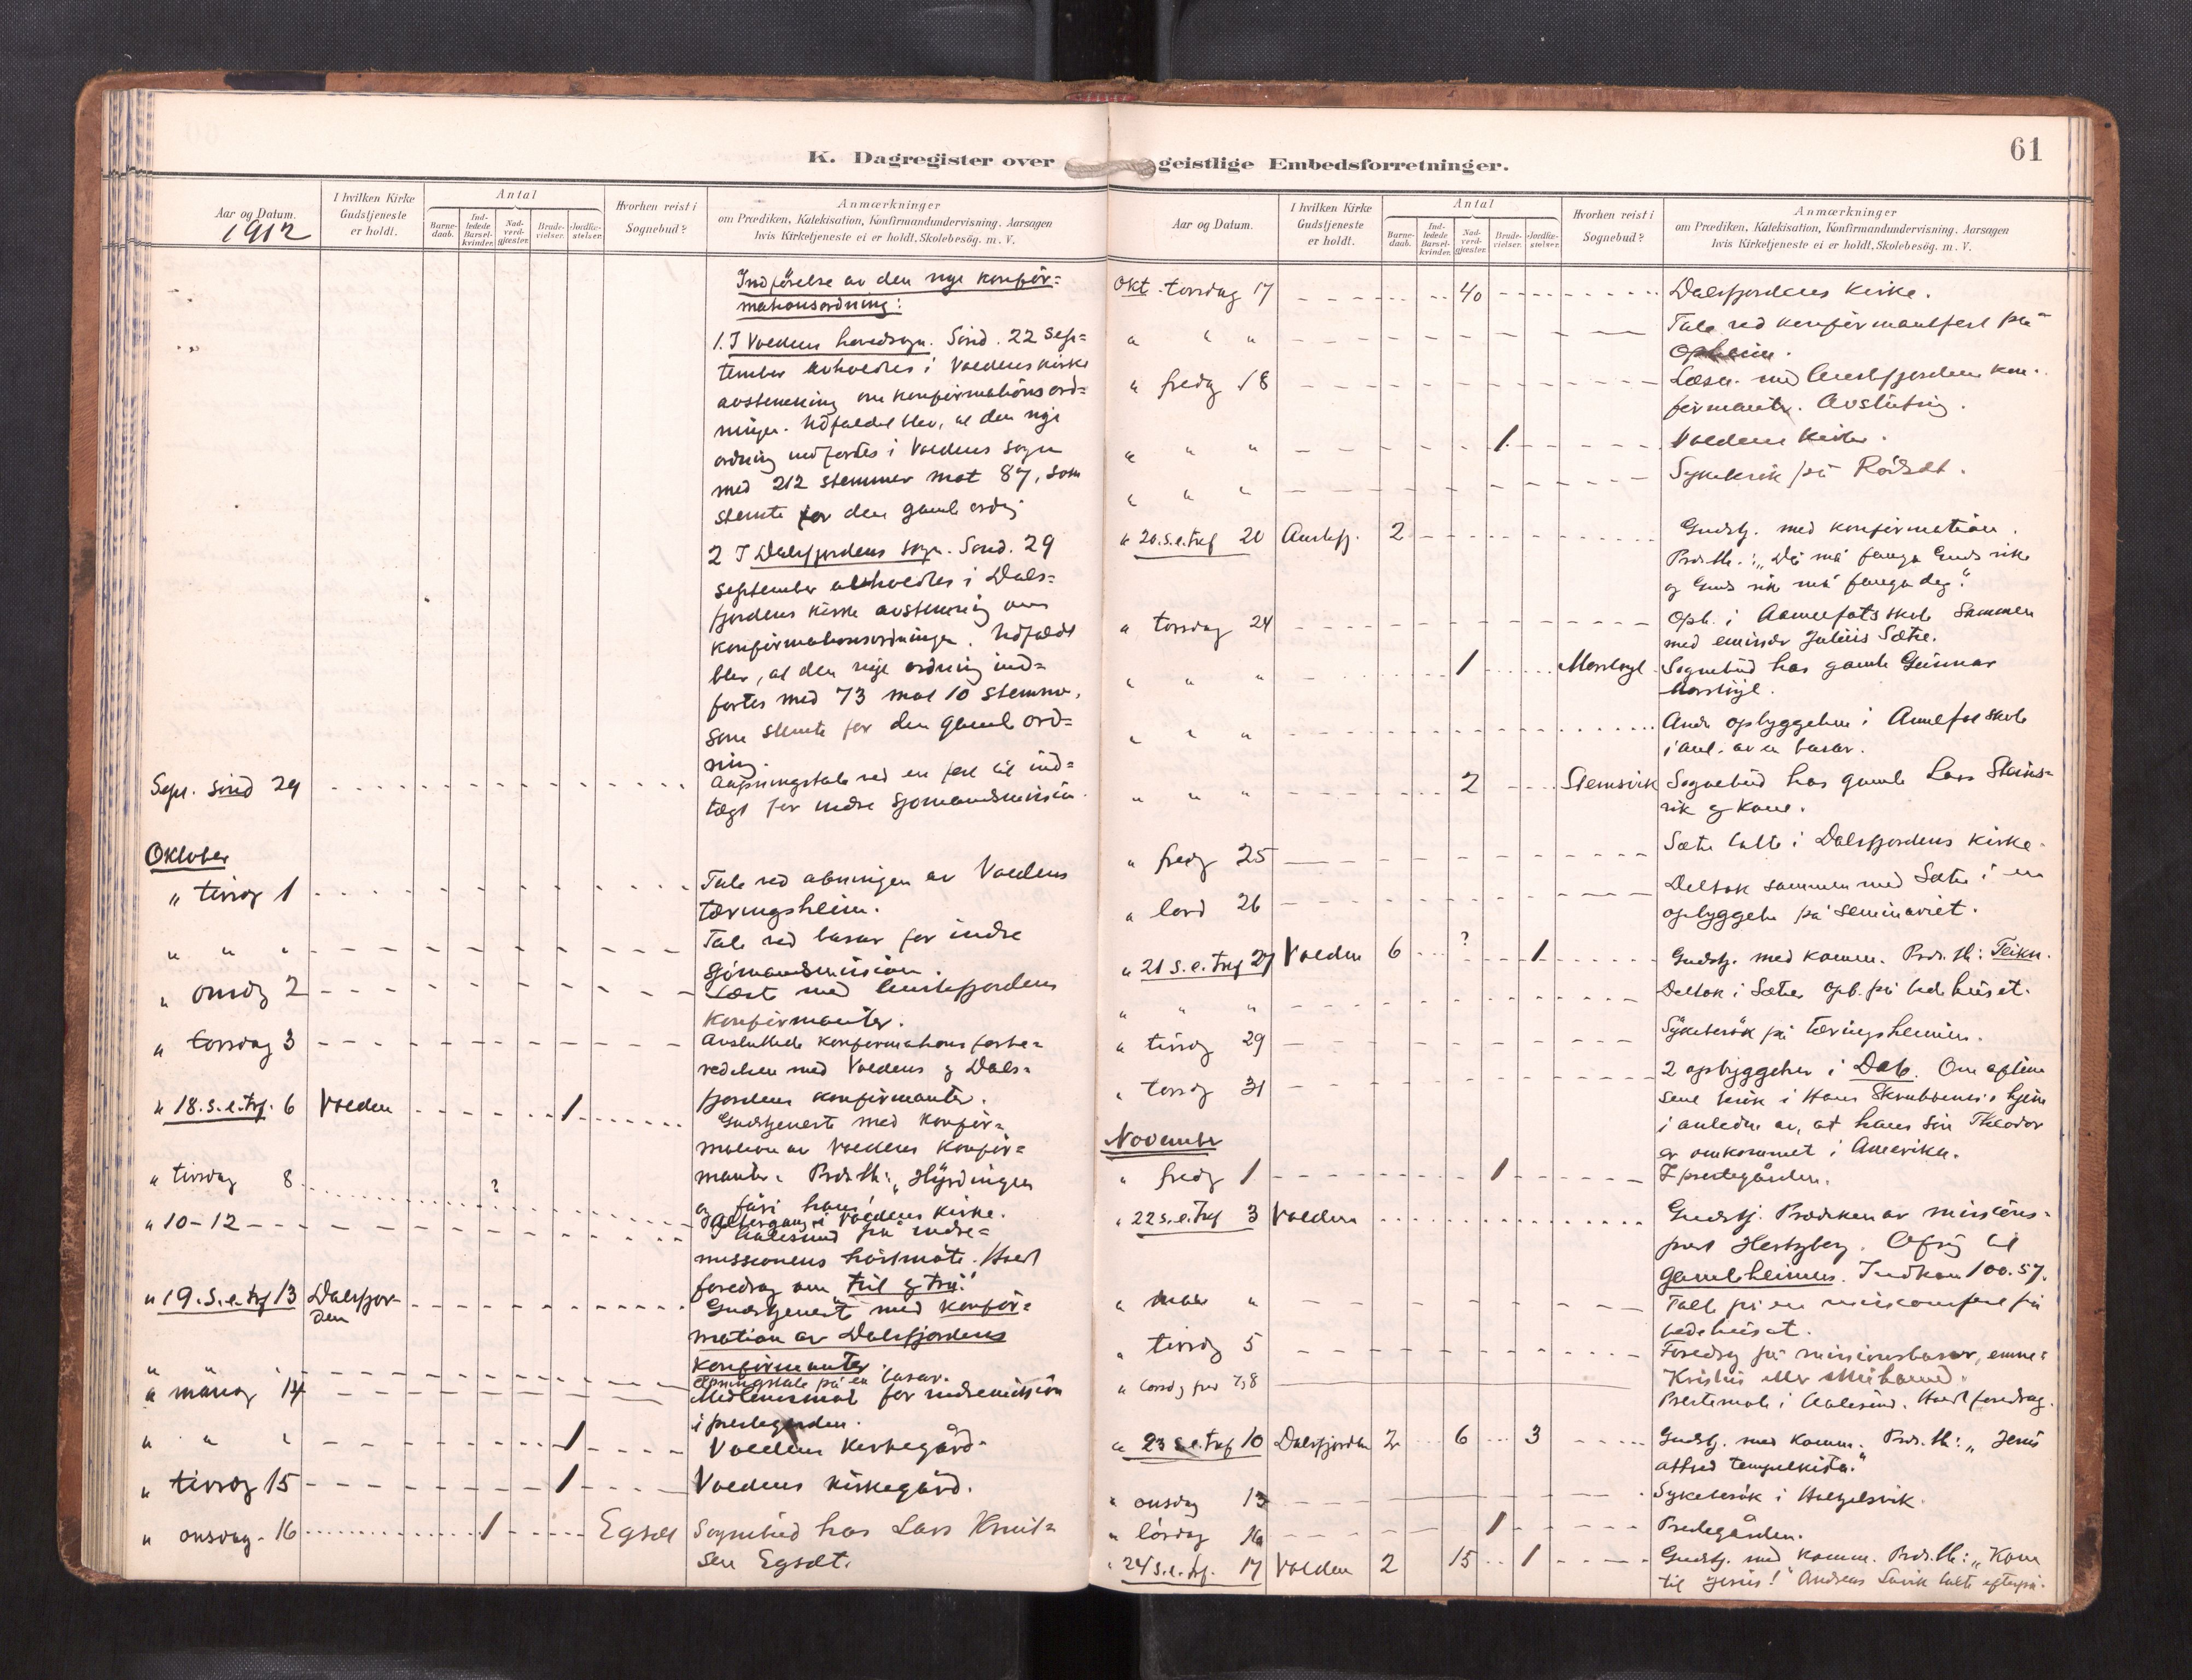 61
K. Dagregister over geistlige Embedsforretninger.
Aar og Datum.
1912
I hvilken Kirke Gudstjeneste er holdt.
Antal
Barne-daab.
Ind-ledede Barsel-kvinder.
Nad-verd-gjæster.
Brude-vielser.
Jordfæ-stelser.
Hvorhen reist i Sognebud?
Anmærkninger
om Prædiken, Katekisation, Konfirmandundervisning. Aarsagen
hvis Kirketjeneste ei er holdt, Skolebesøg. m. V.
Indførelse av den nye konfir=
mationsordning:
1. I Voldens hovedsogn. Sønd. 22 Sep=
tember avholdtes i Voldens kirke
avstemning om konfirmationsord=
ningen. Udfaldet blev, at den nye
ordning indførtes i Voldens sogn
med 212 stemmer mot 87, som
stemte for den gamle ordng
2 I Dalsfjordens sogn. Sønd. 29
September avholdtes i Dals=
fjordens kirke avstemning om
konfirmationsordningen. Udfaldet
blev, at den nye ordning ind=
førtes med 73 mot 10 stemmer,
som stemte for den gamle ord=
ning.
Sept. sønd 29 Aapningstale ved en fest til ind=
tægt for indre Sjømandsmisión.
Oktober
" tirsdg 1 Tale ved åbningen av Voldens
tæringsheim.
" " " Tale ved basar for indre
sjømandsmisión.
" onsdg 2 Læst med Austefjordens
konfirmanter.
" torsdag 3 Avsluttede konfirmationsforbe=
redelsen med Voldens og Dals=
fjordens konfirmanter.
" 18. s. e. trf. 6 Volden 1 Gudstjeneste med konfir=
mation av Voldens konfir=
manter. Præd. th: "Hyrdingen
og fåri hans"
" tirsdag 8 ? Altergang i Voldens kirke.
" 10-12 I Aalesund på indre=
missionens høstmøte. Holdt
foredrag om tvil og tru.
" 19. s. e. trf 13 Dalsfjor-
den Gudstjeneste med konfir=
mation av Dalsfjordens
konfirmanter.
" " " Åpningstale på en basar.
" måndg 14 Midlemsmøt for indremission
i prestegården.
" " " 1 Voldens kirkegård.
" tirsdg 15 1 Voldens kirkegård.
" onsdag 16 1 Egset Sognebud hos Lars Knut=
sen Egset.
Aar og Datum.
I hvilken Kirke Gudstjeneste er holdt.
Antal
Barne-daab.
Ind-ledede Barsel-kvinder.
Nad-verd-gjæster.
Brude-vielser.
Jordfæ-stelser.
Hvorhen reist i Sognebud?
Anmærkninger
om Prædiken, Katekisation, Konfirmandundervisning. Aarsagen
hvis Kirketjeneste ei er holdt, Skolebesøg. m. V.
Okt. torsdag 17 40 Dalsfjordens kirke.
" " " Tale ved konfirmantfest på
Opheim.
" fredg 18 Læsn. med Austefjordens kon-
firmanter. Avslutng.
" " " 1 Voldens kirke.
" " " Sykebesøk på Rødset.
" 20. s. e. trf 20 Austefj. 2 Gudstj. med konfirmation.
Præd. th.: "Du må fanga Guds rike
og Guds rike må fanga deg."
" torsdag 24 Opb. i Aamelfots skole sammen
med emissær Julius Sætre.
" " " 1 Mosehyl Sognebud hos gamle Gunnar
" " " Anden opbyggelse i Aamelfot skole
i anl. av en basar.
" " " 2 Steinsvik Sognebud hos gamle Lars Steins=
vik og kone.
" fredg 25 Sætre talte i Dalsfjordens kirke.
" lørd 26 Deltok sammen med Sætre i en
opbyggelse på seminariet.
" 21 s. e. trf 27 Volden 6 ? 1 Gudstj. med komm. Præd. th: Teikn.
" " " Deltok i Sætres opb. på bedehuset.
" tirsdg 29 Sykebesøk på tæringsheimen.
" torsdg 31 2 opbyggelser i Dale. Om aftenen
sene besøk i Hans Skrubbenes's hjem
i anledn. av, at hans søn Theodor
er omkommet i Amerika.
November
" fredg 1 1 I prestegården.
" 22 s. e. trf 3 Volden Gudstj. Prædiken av misións-
prest Hertzberg. Ofring til
Gamleheimen. Indkom 100.57.
" " Talte på en misiónsfest på
bedehuset.
" tirsdg 5 Foredrag på misiónsbasar, emne:
Kristus eller Muhamed.
" 7, 8 Prestemøte i Aalesund. Holdt foredrag.
" 23 s. e. trf 10 Dalsfjorden 2 6 3 Gudstj. med komm. Præd. th: "Jesus
attved tempelkista."
" onsdag 13 Sykebesøk i
" lørdag 16 1 Prestegården.
" 24 s. e. trf. 17 Volden 2 15 1 Gudstj. med komm. Præd. th: "Kom
til Jesus!" Andreas Lavik talte efterpå.